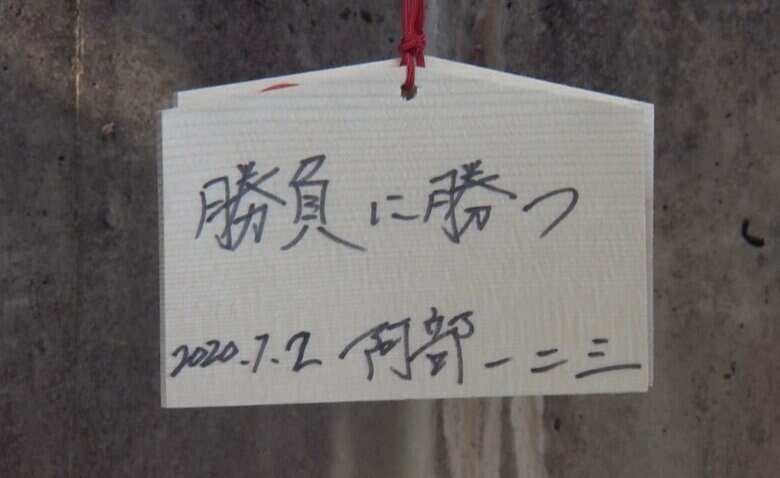 勝負に勝つ
2020.1.2 阿部一二三